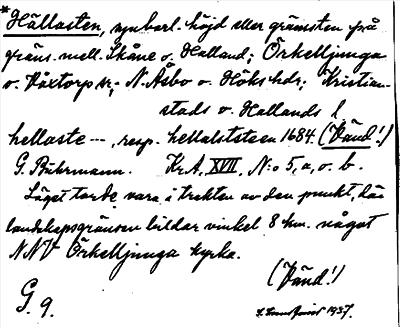 *Hällasten, synbarl. höjd eller gränsten på
gräns. mell. Skåne o. Halland; Örkelljunga
o. Våxtorp sr; N. Åsbo o. Höks hdr; Kristian-
stads o. Hallands l.
hellaste ---, resp. hellalststeen 1684 (Vänd!)
G. Buhrmann. Kr.A. XVII, N:o 5, a, o. b.
Läget torde vara i trakten av den punkt, där
landskapsgränsen bildar vinkel 8 km. något
NNV Örkelljunga kyrka.
(Vänd!)
G. 9.
1937.